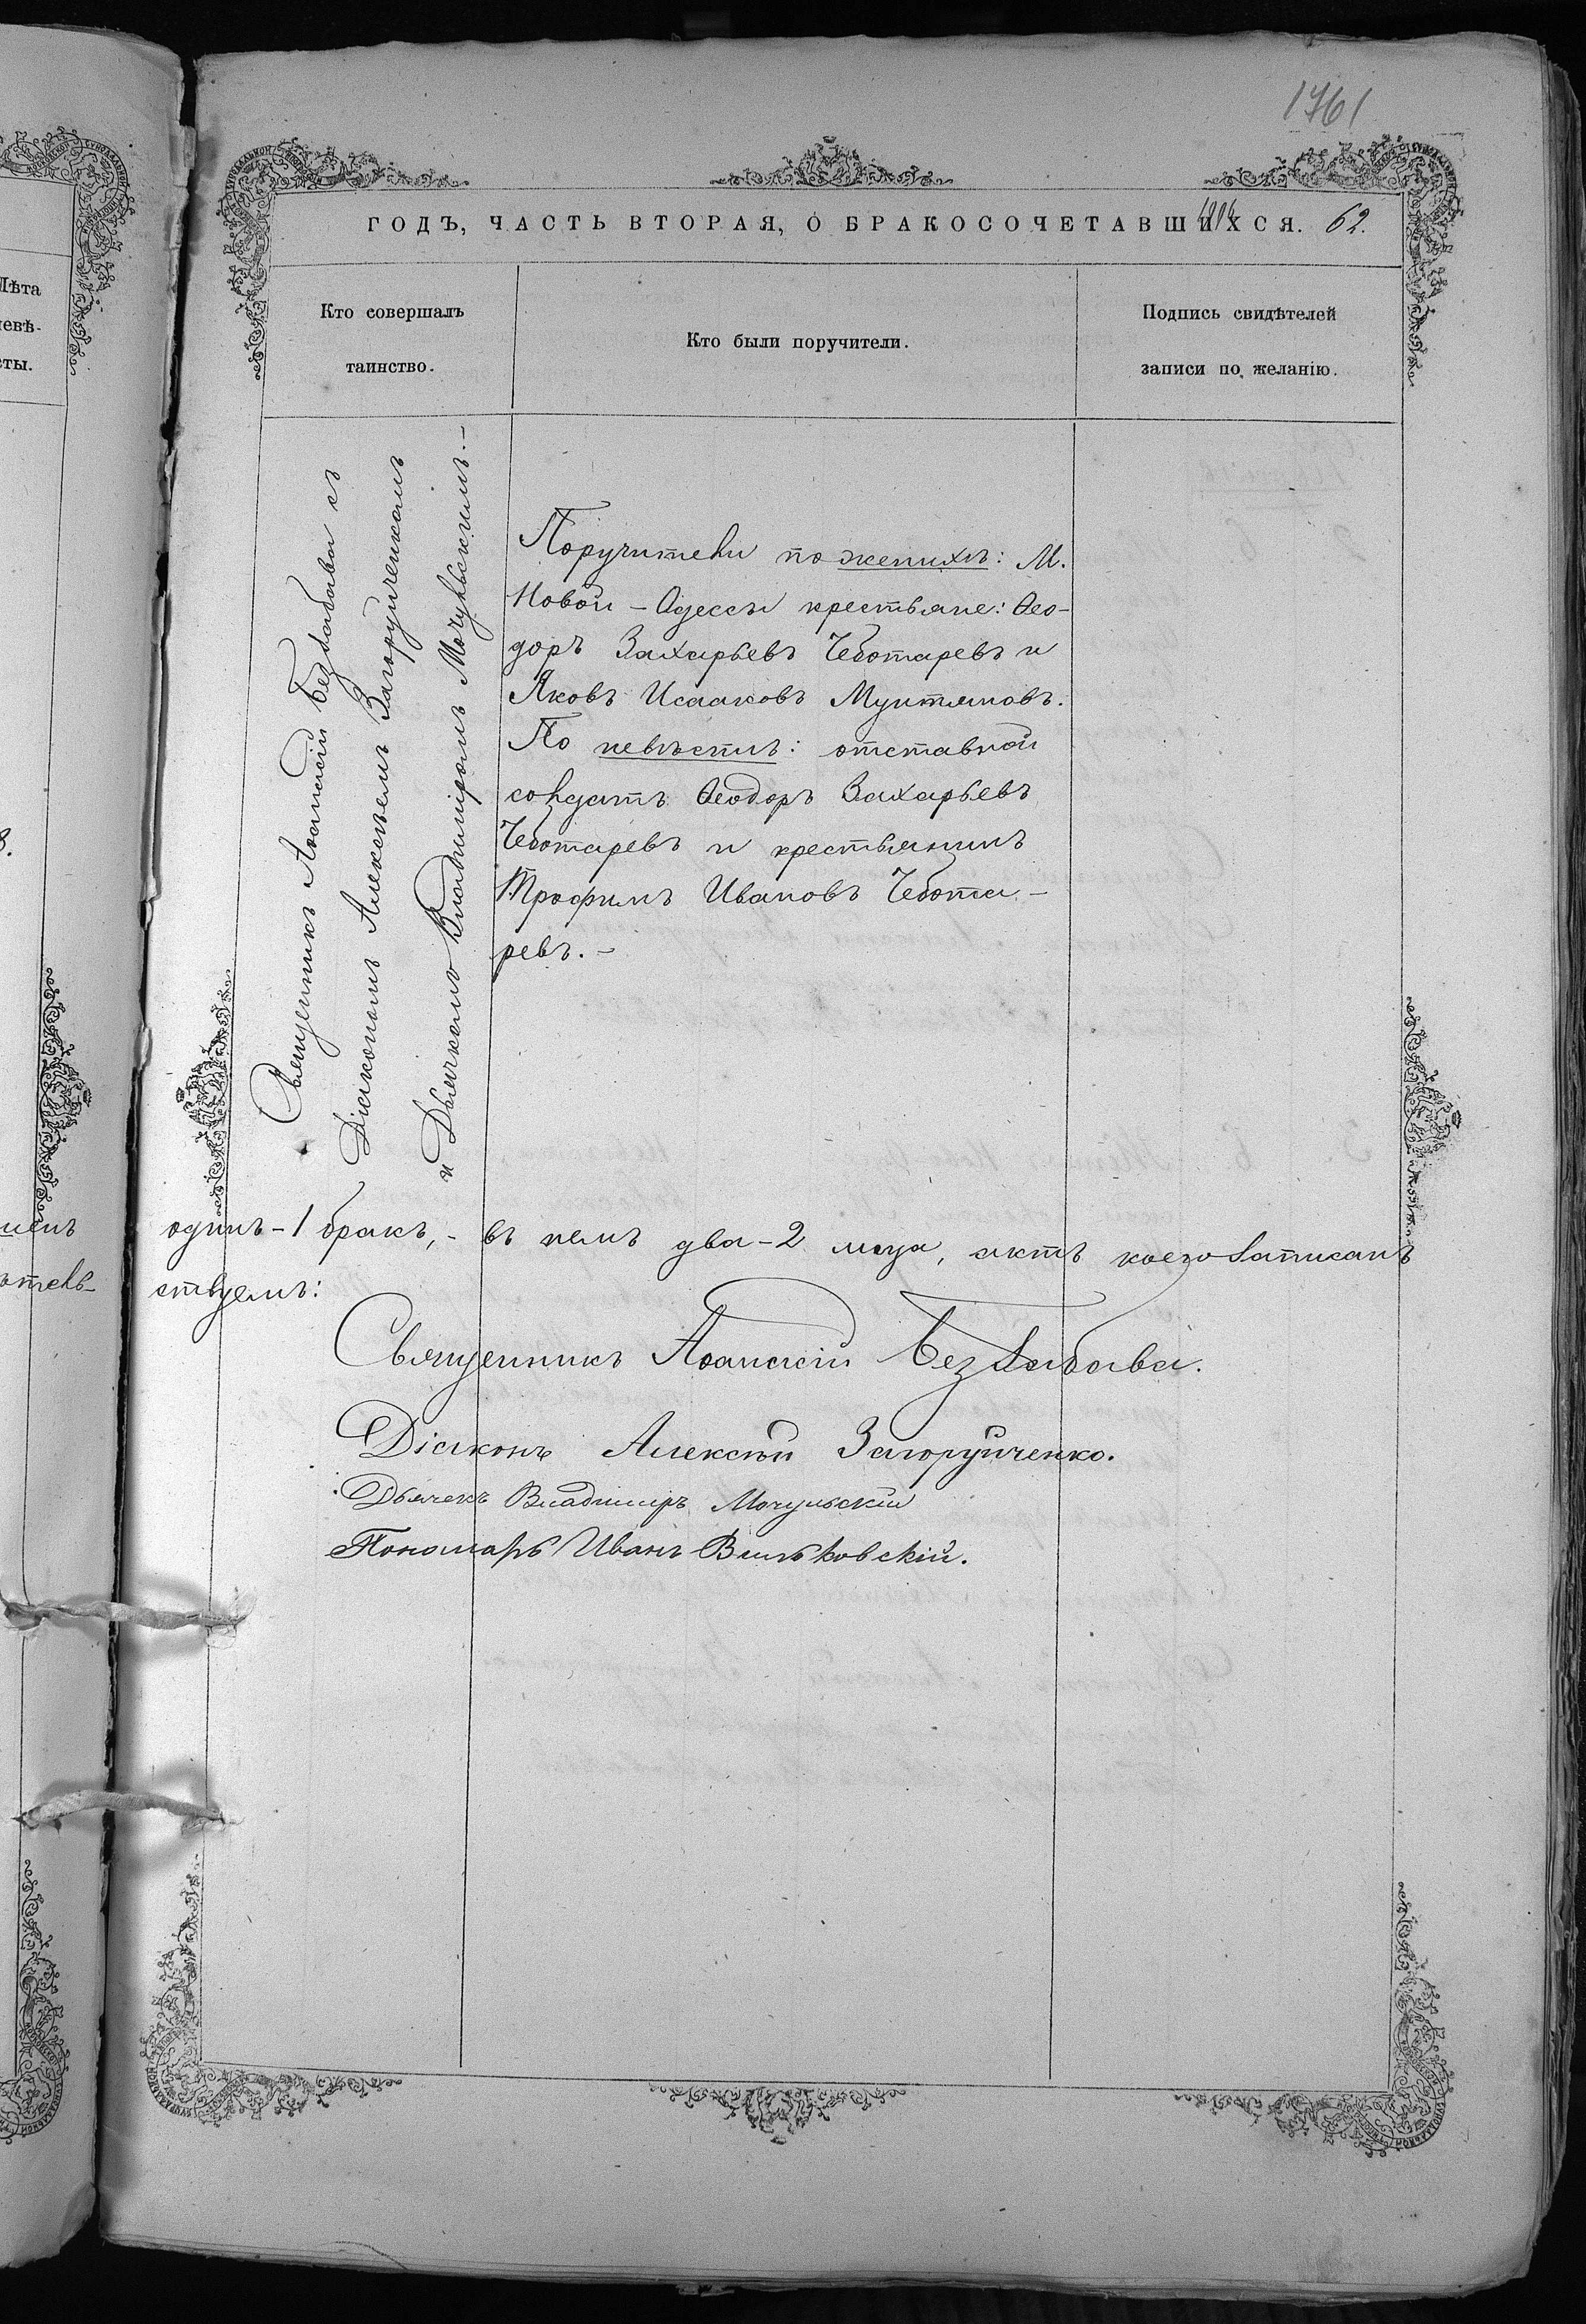 1761
ГОДЪ, ЧАСТЬ ВТОРАЯ, О БРАКОСОЧЕТАВШИХСЯ. 62.
Лѣта
невѣ-
сты.
Кто совершалъ
таинство.
Кто были поручители.
Подпись свидѣтелей
записи по желанію.
Священникъ Аѳанасій Беззабава съ
Діакономъ Алексѣемъ Загоруйченкомъ
и Дьячкомъ Владиміромъ Мочульскимъ.-
Поручители по женихѣ: М.
Новой-Одессы крестьяне: Ѳео-
доръ Захарьевъ Чеботаревъ и
Яковъ Исааковъ Мунтяновъ.
По невѣстѣ: отставной
солдатъ Ѳеодоръ Захарьевъ
Чеботаревъ и крестьянинъ
Трофимъ Ивановъ Чебота-
ревъ.-
одинъ-1 бракъ,- въ немъ два-2 лица, актъ коего записанъ
ствуемъ:
Священникъ Аѳанасій Беззабава.
Діаконъ Алексѣй Загоруйченко.
Дьячекъ Владимиръ Мочульскій
Пономарь Иванъ Вильковскій.